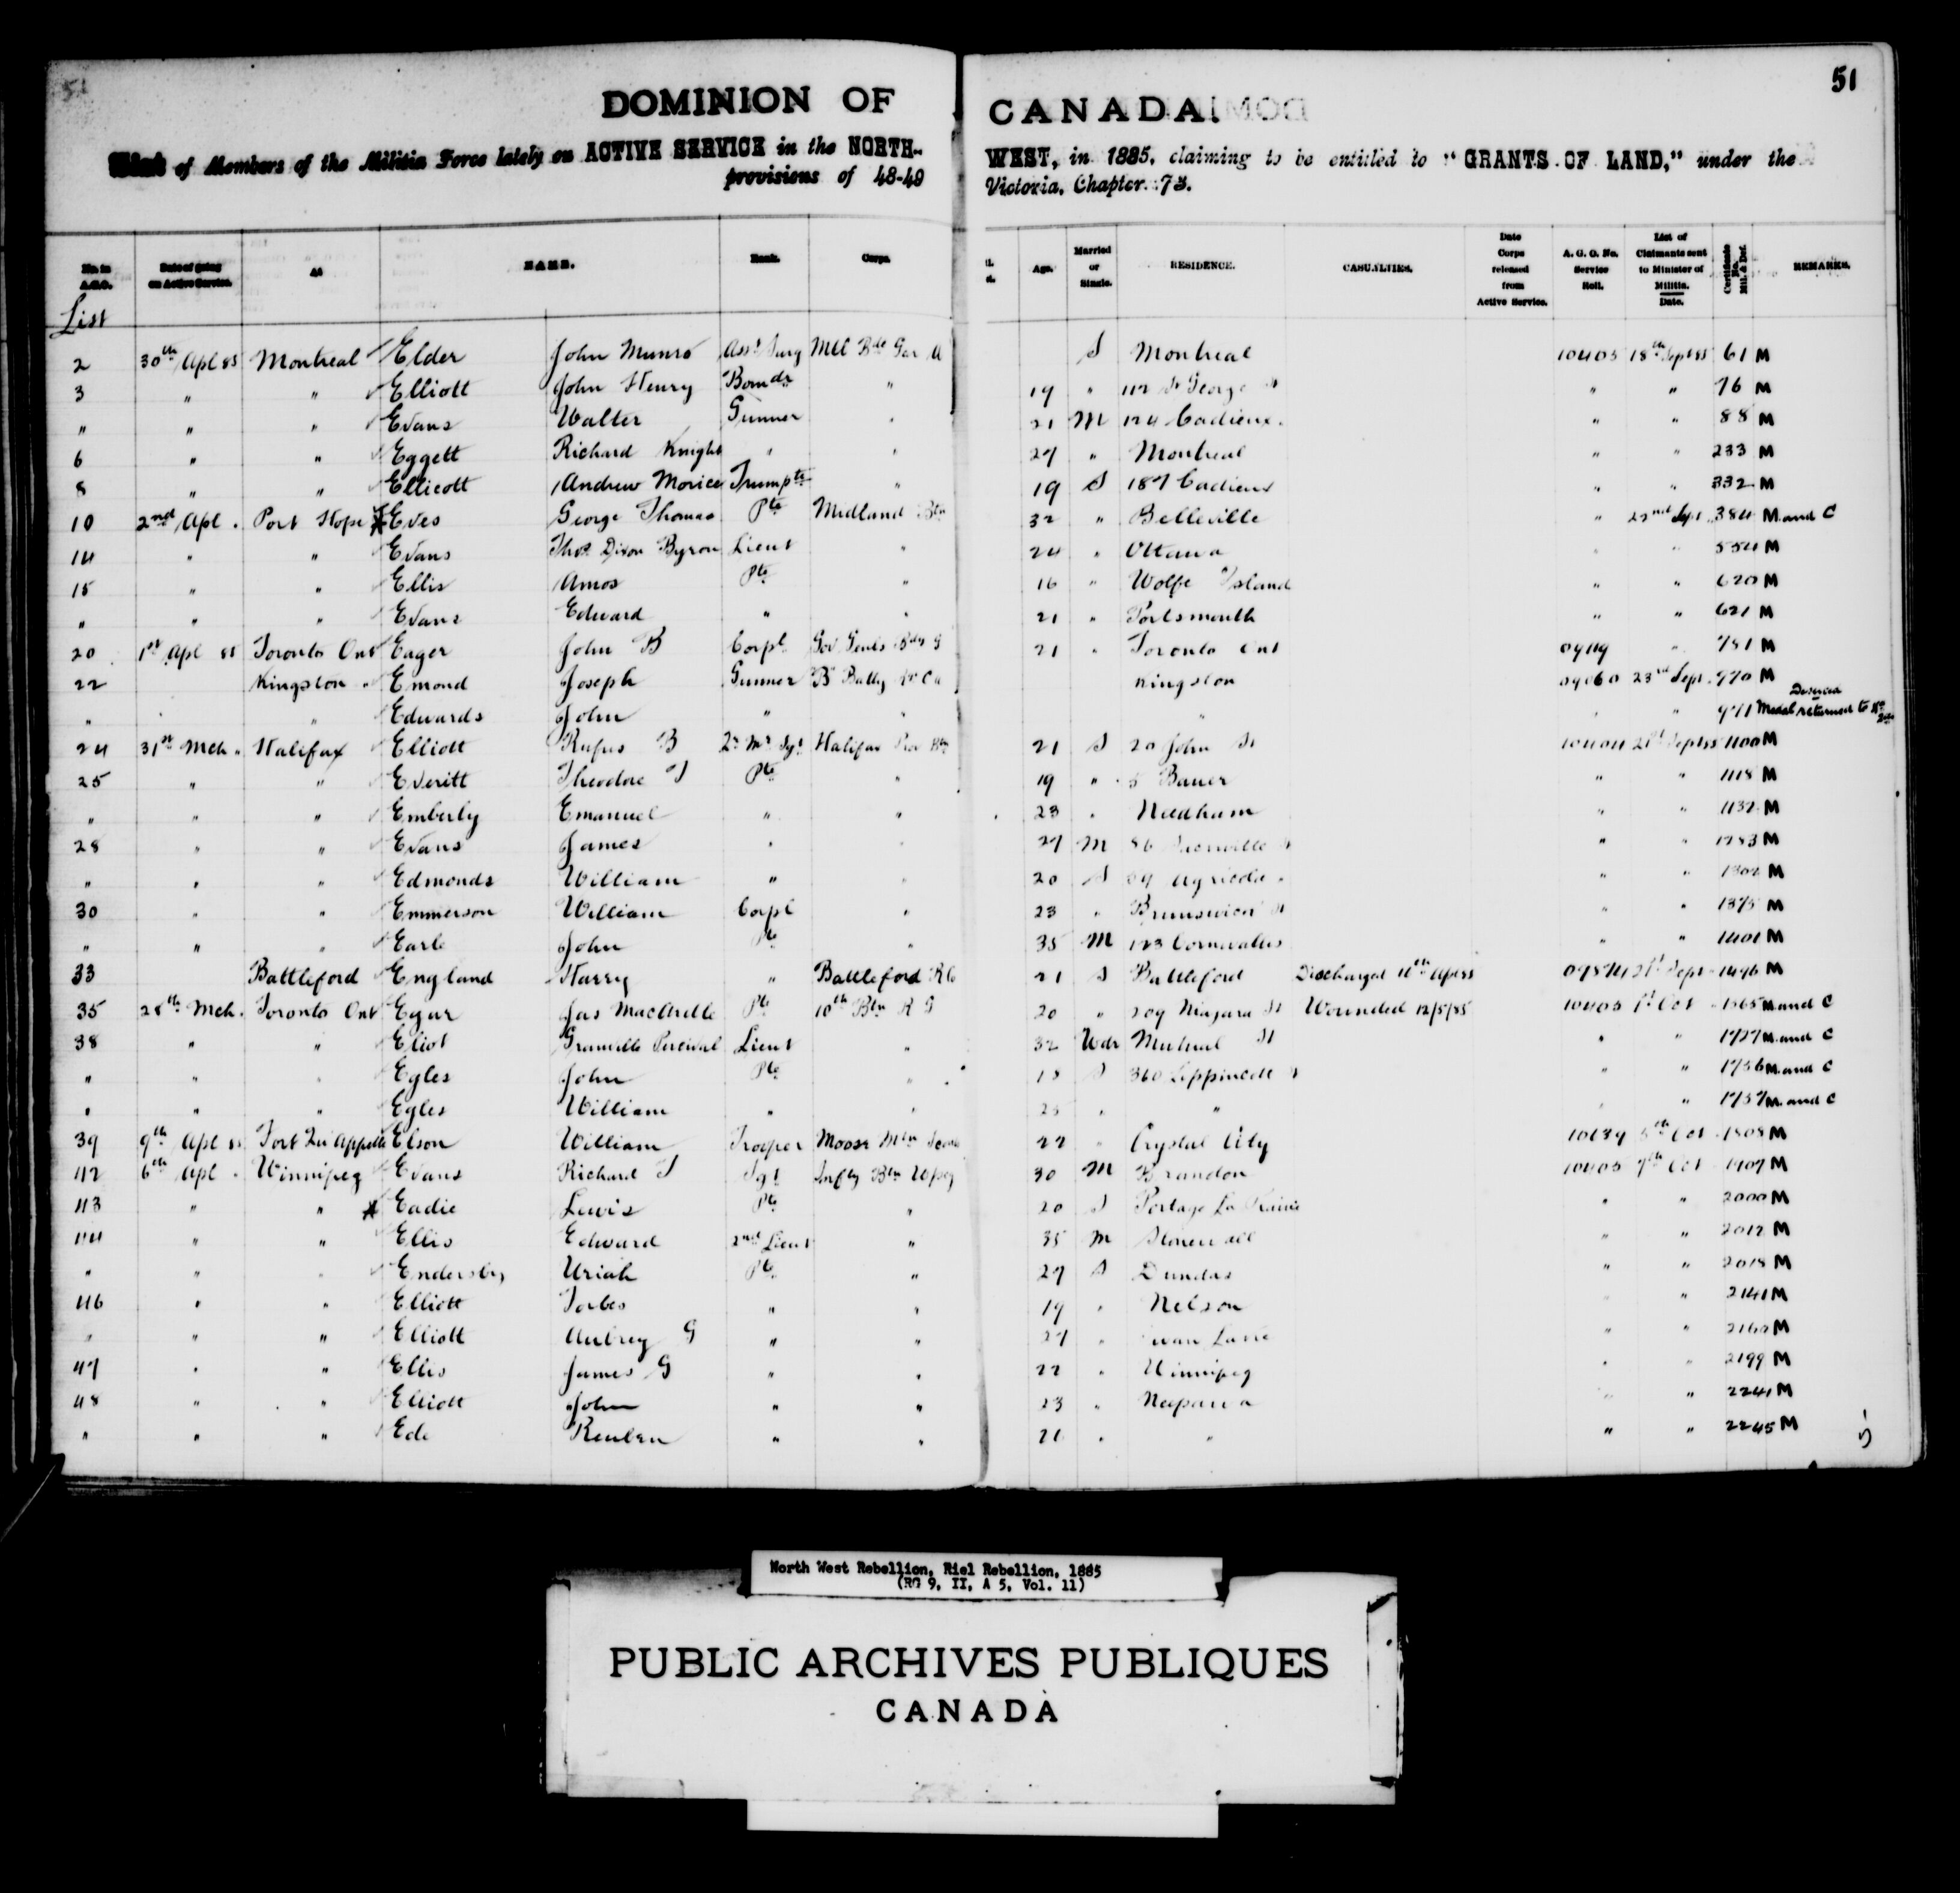 51
DOMINION OF CANADA.
of Members of the Militia Force lately on ACTIVE SERVICE in the NORTH-WEST, in 1885, claiming to be entitled to "GRANTS OF LAND," under the
provisions of 48-49 Victoria, Chapter 73.
No. in A.G.O. Date of going on Active Service. At NAME. Rank. Corps. Age. Married or Single. RESIDENCE. CASUALTIES. Date Corps released from Active Service. A. G. O. No. Service Roll. List of Claimants sent to Minister of Militia. Date. Certificate No. Mil. & Def. REMARKS.
List
2 30th Apl 85 Montreal Elder John Munro Asst Surg Mtl Bde Gar A S Montreal 10405 18th Sept 85 61 M
3 " " Elliott John Henry Bombr " 19 " 112 St George St " " 76 M
" " " Evans Walter Gunner " 21 M 124 Cadieux " " 88 M
6 " " Eggett Richard Knight " " 27 " Montreal " " 233 M
8 " " Ellicott Andrew Morice Trumptr " 19 S 187 Cadieux " " 332 M
10 2nd Apl " Port Hope Eves George Thomas Pte Midland Btn 32 " Belleville " 22nd Sept " 384 M and C
14 " " Evans Thos Dixon Byron Lieut " 24 " Ottawa " " 554 M
15 " " Ellis Amos Pte " 16 " Wolfe Island " " 620 M
" " " Evans Edward " " 21 " Portsmouth " " 621 M
20 1st Apl 85 Toronto Ont Eager John B Corpl Gov Genls Bdy G 21 " Toronto Ont " 781 M
22 Kingston " Emond Joseph Gunner "B" Batty Kingston 23rd Sept 970 M
" " " Edwards John " " " " " 971 Deserted Medal returned to
24 31st Mch " Halifax Elliott Rufus B Qr Mr Sgt Halifax Pro Btn 21 S 20 John St 1100 M
25 " " Everitt Theodore Pte " 19 " 5 Bauer " " 1118 M
" " " Emberly Emanuel " " 23 " Needham " " 1132 M
28 " " Evans James " " 27 M " " 1283 M
" " " Edmonds William " " 20 S Agricola " " " 1302 M
30 " " Emmerson William Corpl " 23 " Brunswick St " " 1375 M
" " " Earle John Pte " 35 M 123 Cornwallis " " 1401 M
33 Battleford England Harry " Battleford R Co 21 S Battleford Discharged Sept 1496 M
35 28th Mch " Toronto Ont Egar Jas Pte 10th Btn R G 20 " 209 Niagara St Wounded 12/5/85 10405 1st Oct 1565 M and C
38 " " Eliot Granville Percival Lieut " 32 Wdr Mutual St " " 1727 M and C
" " " Egles John Pte " 18 S 360 Lippincott St " " 1756 M and C
" " " Egles William " " 25 " " " " 1757 M and C
39 9th Apl 85 Fort Qu Appelle Elson William Trooper Moose Mtn Scouts 22 " Crystal City 10639 5th Oct 1808 M
42 6th Apl " Winnipeg Evans Richard Sgt Infty Btn Wpeg 30 M Brandon 10405 7th Oct 1907 M
43 " " Eadie Lewis Pte " 20 S Portage La Prairie " " 2000 M
44 " " Ellis Edward 2nd Lieut " 35 M Stonewall " " 2012 M
" " " Endersby Uriah Pte " 27 S Dundas " " 2018 M
46 " " Elliott Forbes " " 19 " Nelson " " 2141 M
" " " Elliott Aubrey G " " 27 " " " 2160 M
47 " " Ellis James G " " 22 " Winnipeg " " 2199 M
48 " " Elliott John " " 23 " Neepawa " " 2241 M
" " " Ede Reuben " " 21 " " " " 2245 M
North West Rebellion, Riel Rebellion, 1885
(RG 9, II, A 5, Vol. 11)
PUBLIC ARCHIVES PUBLIQUES
CANADA